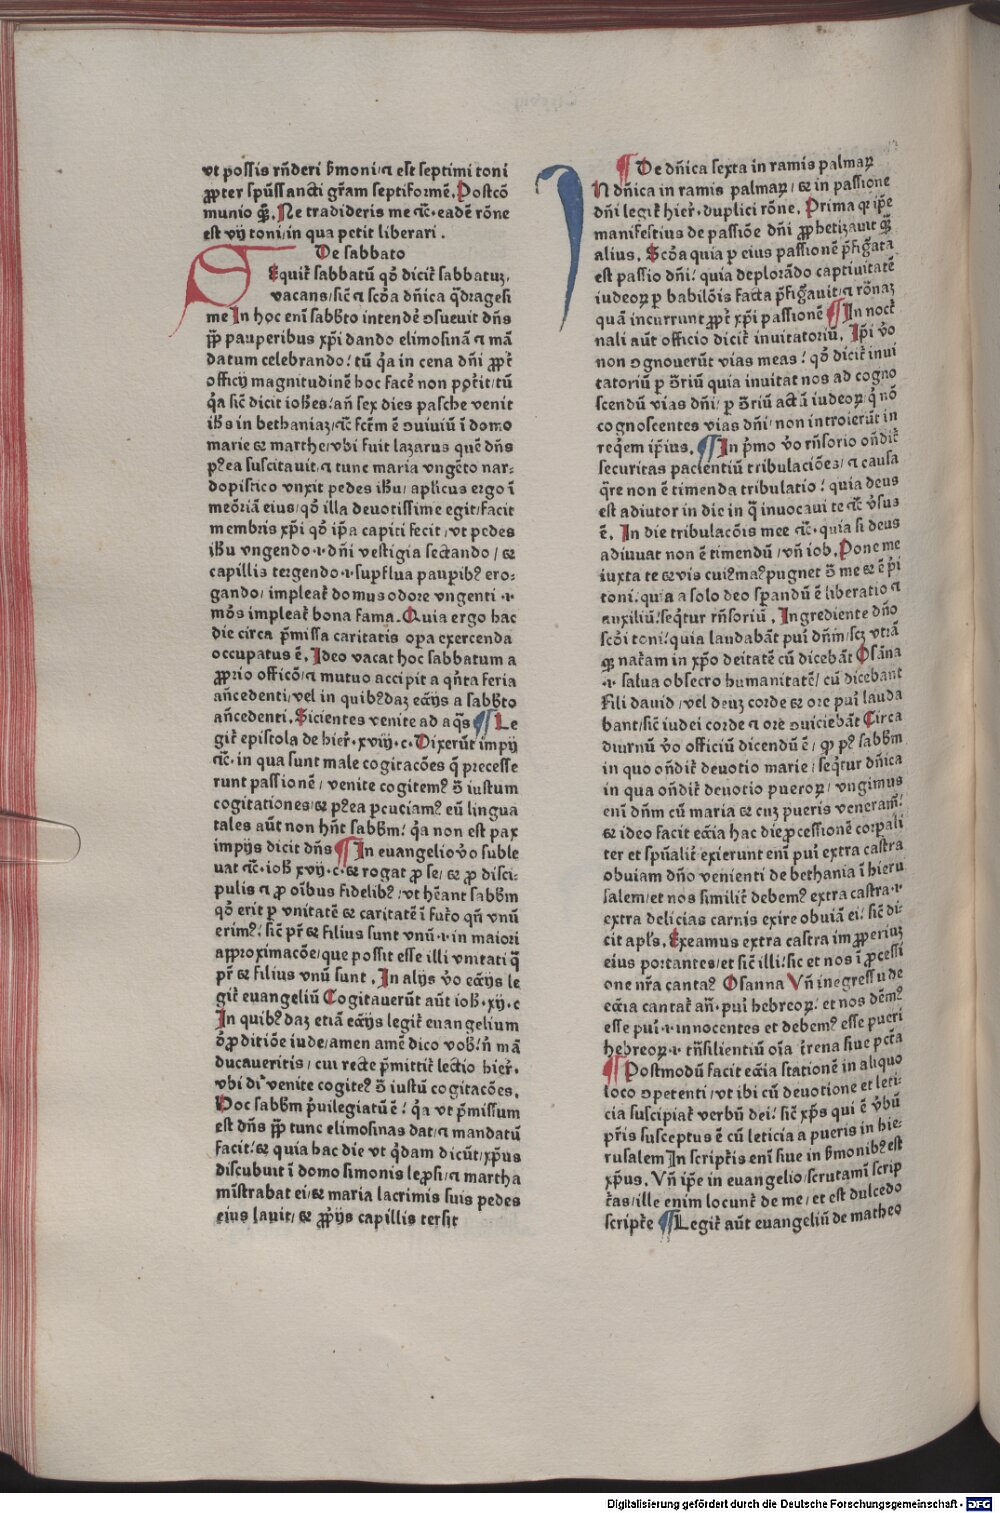 vt possis rñderi ƀmoni/ꞇ est septimi toni
ꝓpter spũssancti gr̃am septiformẽ. Postcõ
munio q̃. Ne tradideris me ⁊c̃· eadẽ rõne
est vij toni/in qua petit liberari.
De sabbato
Sequit᷑ sabbatũ qđ dicit᷑ sabbatuʒ,
vacans/sic̃ ꞇ scđa dñica q̃dragesi
me In hoc eni᷑ sabb̃to intendẽ ↄsueuit dñs
ꝓp̃ pauperibus xp̃i dando elimosinã ꞇ mã
datum celebrando! tũ q̃a in cena dñi ꝓpt᷑
officij magnitudinẽ hoc facẽ non pot̃it/tũ
q̃a sic̃ dicit ioh̃es! añ sex dies pasche venit
ih̃s in bethaniaʒ/⁊c̃ fc̃m ẽ ↄuiuiũ ĩ domo
marie ⁊ marthe/vbi fuit lazarus quẽ dñs
pꝰea suscitauit/ꞇ tunc maria vngẽto nar-
dopistico vnxit pedes ih̃u/ aplicus ergo ĩ
meõriã eius/qđ illa deuotissime egit/facit
membris xp̃i qđ ip̃a capiti fecit/vt pedes
ih̃u vngendo·i·dñi vestigia sectando/⁊
capillis tergendo·i·supflua paupibꝰ ero-
gando/impleat᷑ domus odore vngenti ·i·
mõs impleat᷑ bona fama. Quia ergo hac
die circa p̃missa caritatis op̃a exercenda
occupatus ẽ. Ideo vacat hoc sabbatum a
ꝓprio officõ/ꞇ mutuo accipit a qñta feria
añcedenti/vel in quibꝰdaʒ ecc̃ijs a sabb̃to
añcedenti. Sicientes venite ad aq̃s ¶ Le
git᷑ epistola de hier̃·xviij·c· Dixerũt impij
⁊c̃· in qua sunt male cogitacões q̃ precesse
runt passionẽ/ venite cogitemꝰ ↄ̃ iustum
cogitationes/⁊ pꝰea pcuciamꝰ eũ lingua
tales aũt non hñt sabb̃m! q̃a non est pax
impijs dicit dñs ¶ In euangelio v̊o suble
uat ⁊c̃·ioh̃ xvij·c·⁊ rogat ꝓ se/⁊ ꝓ disci-
pulis ꞇ ꝓ oĩbus fidelibꝰ/vt hẽant sabb̃m
qđ erit p̱ vnitatẽ ⁊ caritatẽ ĩ fut᷑o qñ vnũ
erimꝰ! sic̃ pr̃ ⁊ filius sunt vnũ·i·in maiori
approximacõe/que possit esse illi vnitati q̃
pr̃ ⁊ filius vnũ sunt. In alijs v̊o ecc̃ijs le
git᷑ euangeliũ Cogitauerũt aũt ioh̃·xij·c
In quibꝰdaʒ etiã ecc̃ijs legit᷑ euangelium
đ ꝓditiõe iude/amen amẽ dico vob̃! ñ mã
ducaueritis/ cui recte p̃mittit᷑ lectio hier̃·
vbi dr̃ venite cogitẽꝰ ↄ̃ iustũ cogitacões.
Hoc sabb̃m p̃uilegiatũ ẽ! q̃a vt p̃missum
est dñs ꝓp̃ tunc elimosinas dat/ꞇ mandatũ
facit!⁊ quia hac die vt q̃dam dicũt/xp̃us
discubuit ĩ domo simonis lep̱si/ꞇ martha
mĩstrabat ei/⁊ maria lacrimis suis pedes
eius lauit/ ⁊ ꝓprijs capillis tersit
¶ De dñica sexta in ramis palmaꝝ
IN dñica in ramis palmaꝝ/⁊ in passione
dñi legit᷑ hier̃· duplici rõne. Prima qꝛ ip̃e
manifestius de passiõe dñi ꝓphetizauit q̃
alius. Scđa quia p̱ eius passionẽ p̃fig̃ata
est passio dñi! quia deplorãdo captiuitatẽ
iudeoꝝ p̱ babilõis facta p̃fig̃auit/ꞇ rõnaʒ
quã incurrunt ꝓpt᷑ xp̃i passionẽ ¶ In noct᷑
nali aũt officio dicit᷑ inuitatoriũ. Ip̃i v̊o
non ↄgnouerũt vias meas! qđ dicit᷑ inui
tatoriũ p̱ ↄ̃riũ quia inuitat nos ad cogno
scendũ vias dñi/ p̱ ↄ̃riũ actã iudeoꝝ/q̃ nõ
cognoscentes vias dñi/ non introierũt in
req̃em ip̃ius. ¶ In p̃mo v̊o rñsorio oñdit᷑
securitas pacientiũ tribulaciõeʒ/ ꞇ causa
q̃re non ẽ timenda tribulatio! quia deus
est adiutor in die in q̃ inuocaui te ⁊c̃ v̊sus
ẽ. In die tribulacõis mee ⁊c̃· quia si deus
adiuuat non ẽ timendũ/ vñ iob. Pone me
iuxta te ⁊ vis cuiꝰ maꝰ pugnet ↄ̃ me ⁊ ẽ p̃i
toni. quia a solo deo sp̱andũ ẽ liberatio ꞇ
auxiliũ! seq̃tur rñsoriũ. Ingrediente dño
scđi toni! quia laudabãt pui᷑ dñm/scʒ vtiã
qꝫ nat᷑am in xp̃o deitatẽ cũ dicebãt Osãna
·i· salua obsecro humanitatẽ/ cũ dicebant
Fili dauid/ vel deuʒ corde ⁊ ore pui᷑ lauda
bant/sic̃ iudei corde ꞇ ore ↄuiciebãt Circa
diurnũ v̊o officiũ dicendũ ẽ/ ꝙ pꝰ sabb̃m
in quo oñdit᷑ deuotio marie/ seq̃tur dñica
in qua oñdit᷑ deuotio pueroꝝ/ vngimus
eni᷑ dñm cũ maria ⁊ cuʒ pueris veneramꝰ!
⁊ ideo facit ecc̃ia hac die ꝓcessionẽ corpali
ter et spũalit᷑ exierunt eni᷑ pui᷑ extra castra
obuiam dño venienti de bethania ĩ hieru
salem/et nos similit᷑ debemꝰ extra castra·i·
extra delicias carnis exire obuiã ei! sic̃ di-
cit apl̃s. Exeamus extra castra im ꝓperiuʒ
eius portantes/et sic̃ illi! sic et nos ĩ ꝓcessi
one nr̃a cantaꝰ Osanna Vñ in egressu de
ecc̃ia cantat᷑ añ· pui᷑ hebreoꝝ! et nos dẽmꝰ
esse pui᷑·i·innocentes et debemꝰ esse pueri
hebreoꝝ·i· trñsilientiũ oĩa t᷑rena siue pctã
¶ Postmodũ facit ecc̃ia stationẽ in aliquo
loco ↄpetenti/vt ibi cũ deuotione et leti-
cia suscipiat᷑ verbũ dei! sic̃ xp̃s qui ẽ v̊bũ
pr̃is susceptus ẽ cũ leticia a pueris in hie-
rusalem In script᷑is eni᷑ siue in ƀmonibꝰ est
xp̃us. Vñ ip̃e in euangelio/scrutami᷑ scrip
t᷑as/ille enim locunt᷑ de me/ et est dulcedo
script᷑e ¶ Legit᷑ aũt euangeliũ de matheo
Digitalisierung gefördert durch die Deutsche Forschungsgemeinschaft - DFG